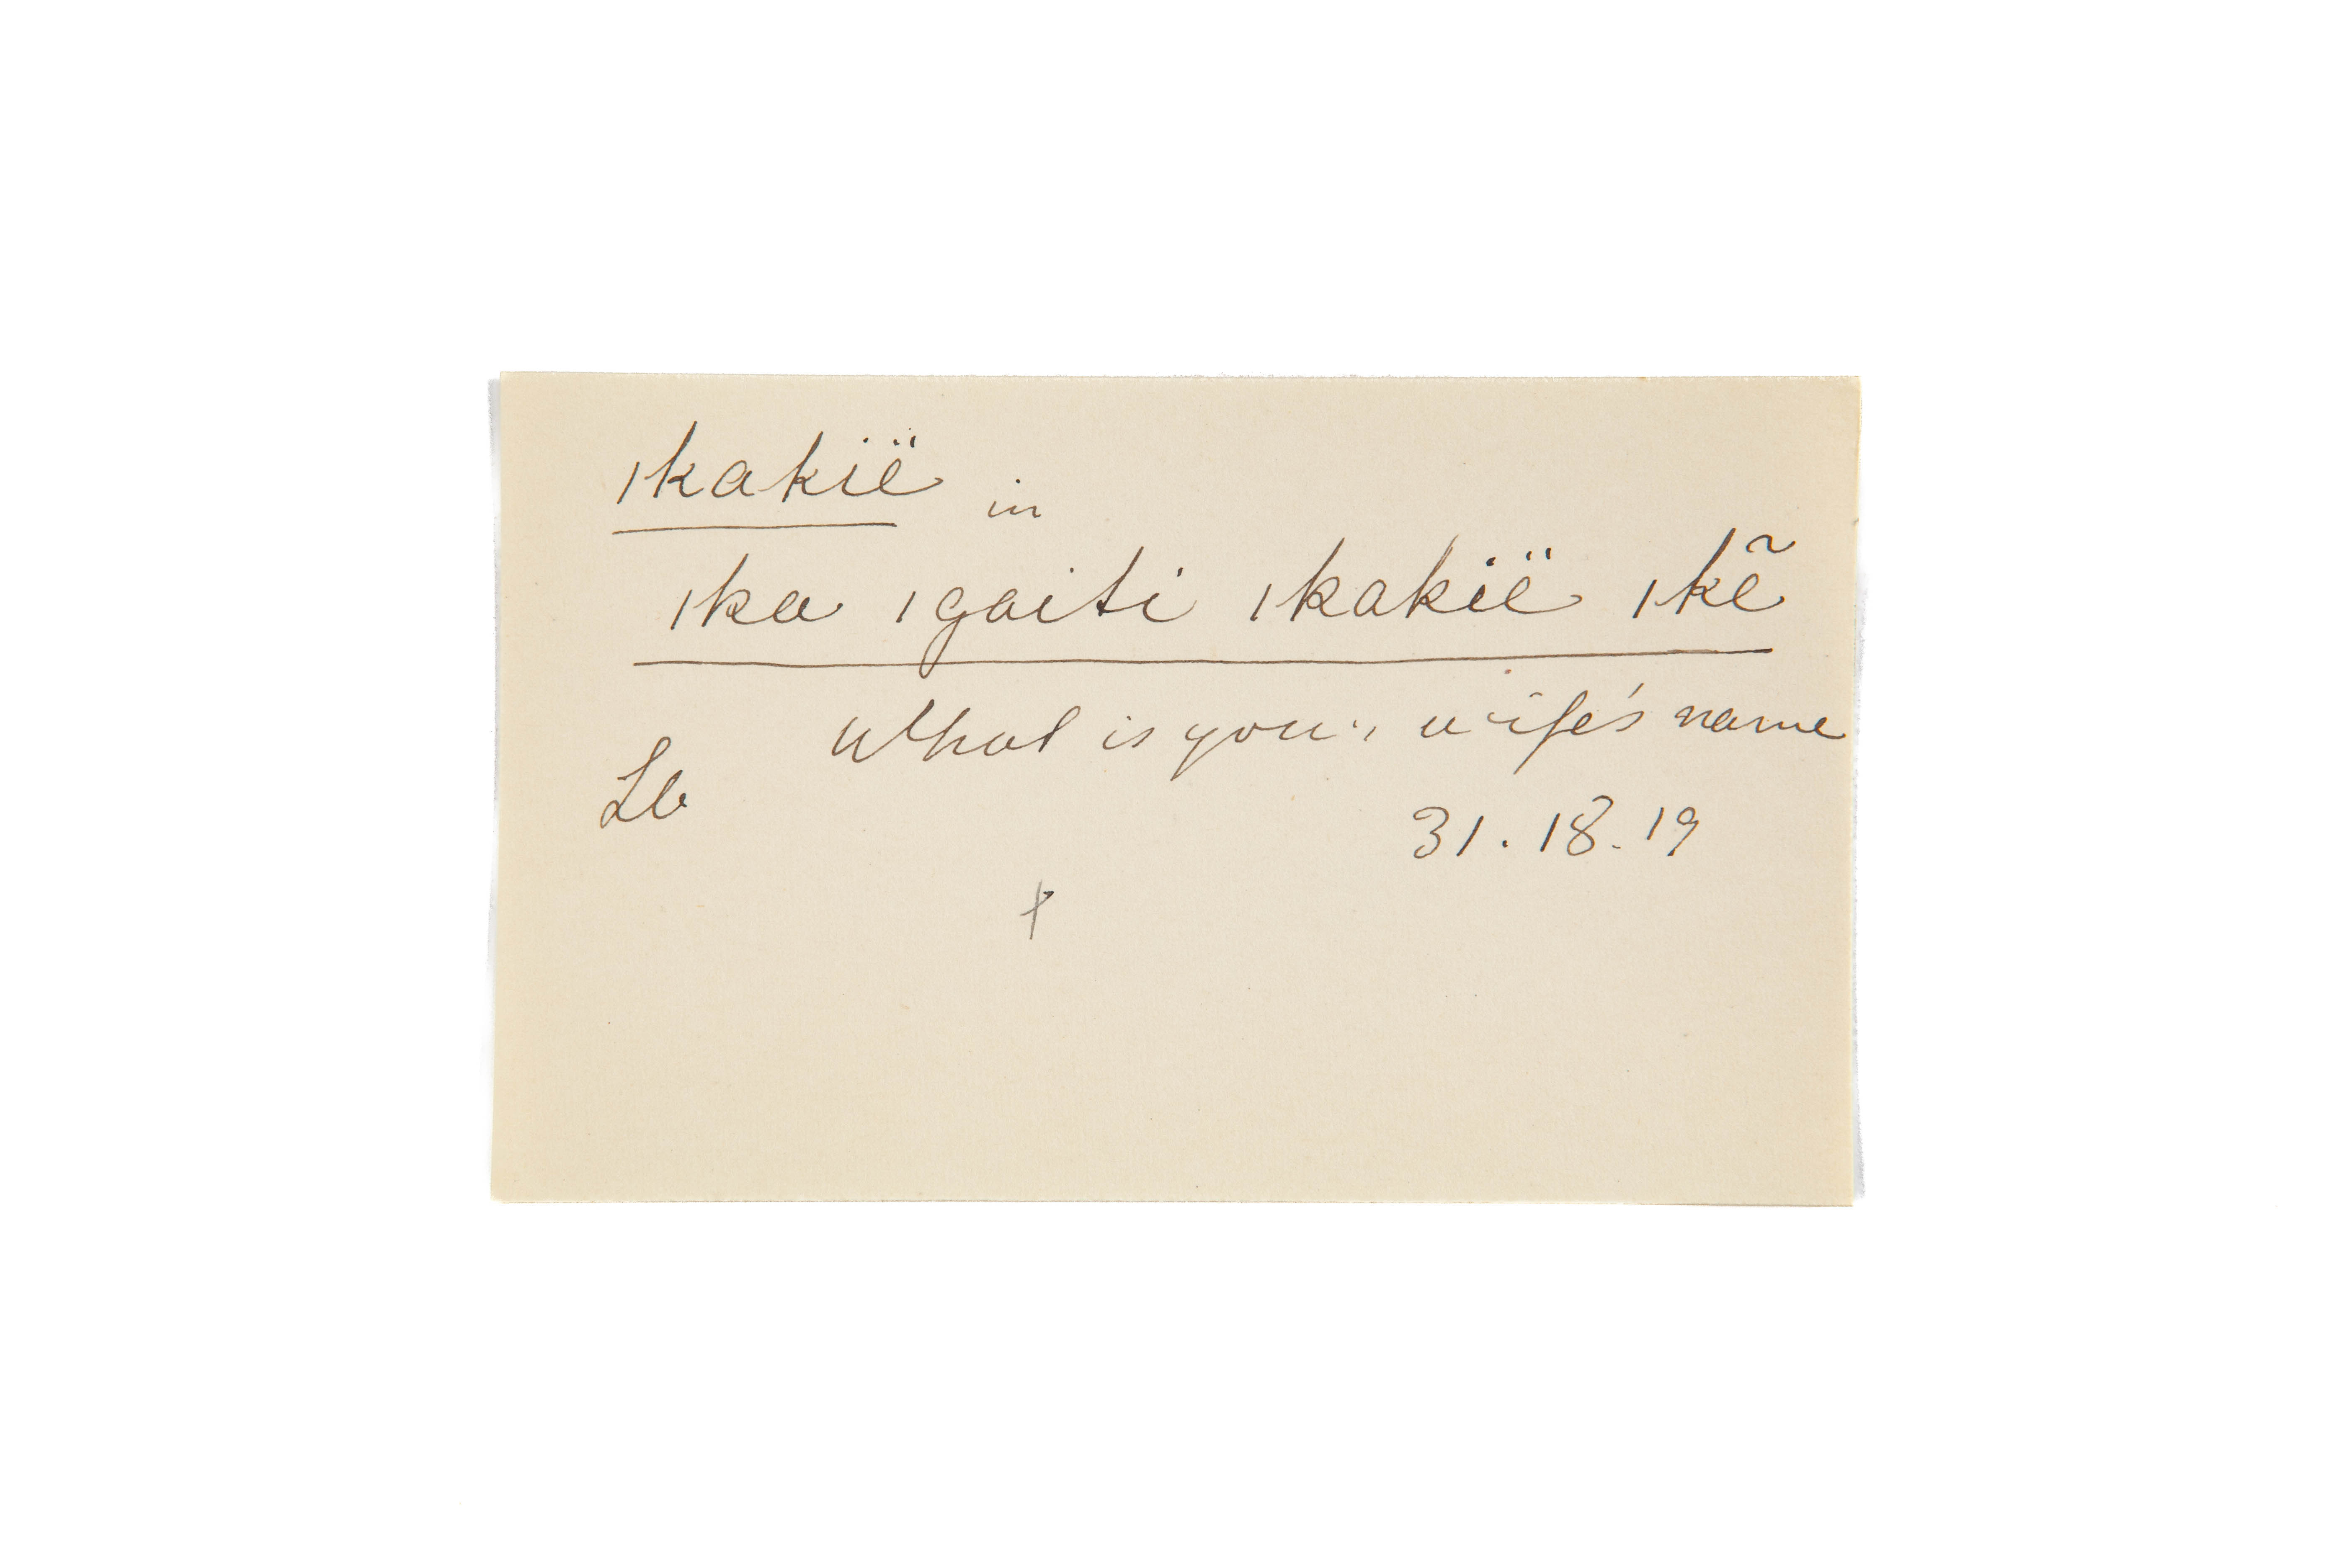 ıkakië in
ıka ıgaiti ıkakië ıkẽ
What is your wife's name
Lb
31.18.19
+